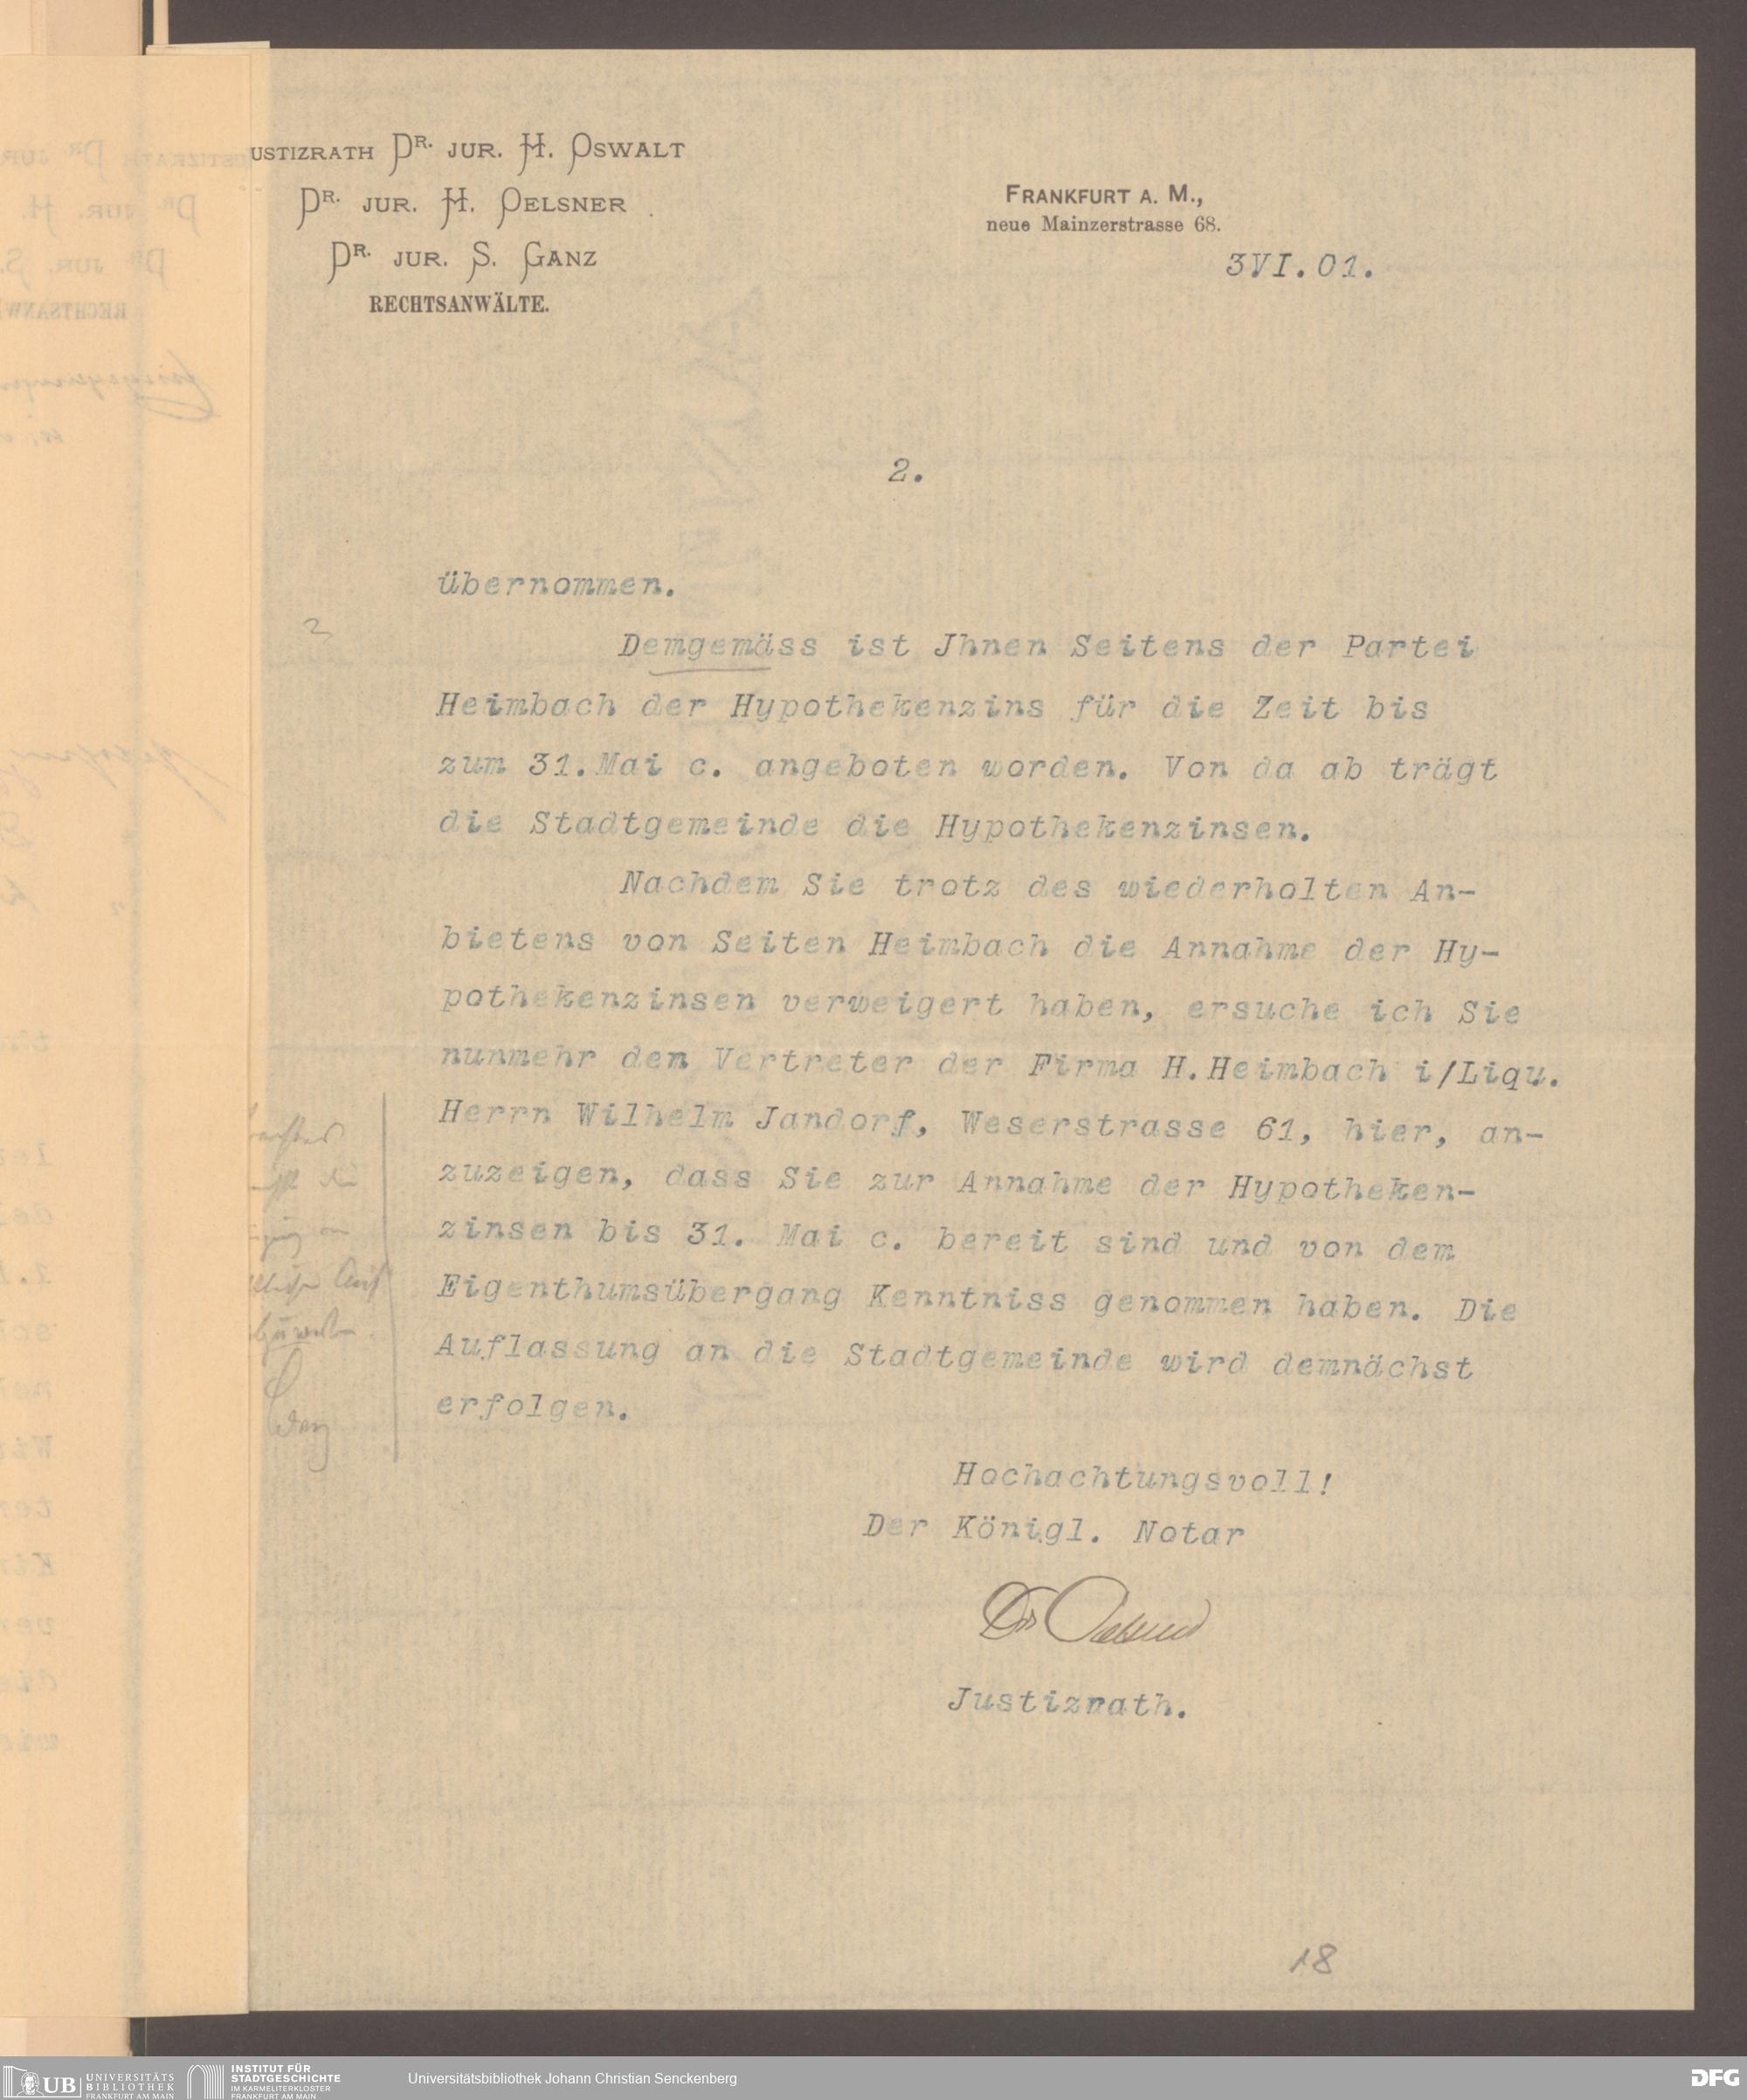 USTIZRATH DR. JUR. H. OSWALT
DR. JUR. H. OELSNER
DR. JUR. S. GANZ
RECHTSANWÄLTE.
FRANKFURT A. M.,
neue Mainzerstrasse 68.
3VI.01.
2.
übernommen.
2
Demgemäss ist Jhnen Seitens der Partei
Heimbach der Hypothekenzins für die Zeit bis
zum 31.Mai c. angeboten worden. Von da ab trägt
die Stadtgemeinde die Hypothekenzinsen.
Nachdem Sie trotz des wiederholten An-
bietens von Seiten Heimbach die Annahme der Hy-
pothekenzinsen verweigert haben, ersuche ich Sie
nunmehr den Vertreter der Firma H.Heimbach i/Liqu.
Herrn Wilhelm Jandorf, Weserstrasse 61, hier, an-
zuzeigen, dass Sie zur Annahme der Hypotheken-
zinsen bis 31. Mai c. bereit sind und von dem
Eigenthumsübergang Kenntniss genommen haben. Die
Auflassung an die Stadtgemeinde wird demnächst
erfolgen.
Hochachtungsvoll!
Der Königl. Notar
Dr
Justizrath.
18
UB UNIVERSITÄTS
BIBLIOTHEK
FRANKFURT AM MAIN
INSTITUT FÜR
STADTGESCHICHTE
IM KARMELITERKLOSTER
FRANKFURT AM MAIN
Universitätsbibliothek Johann Christian Senckenberg
DFG